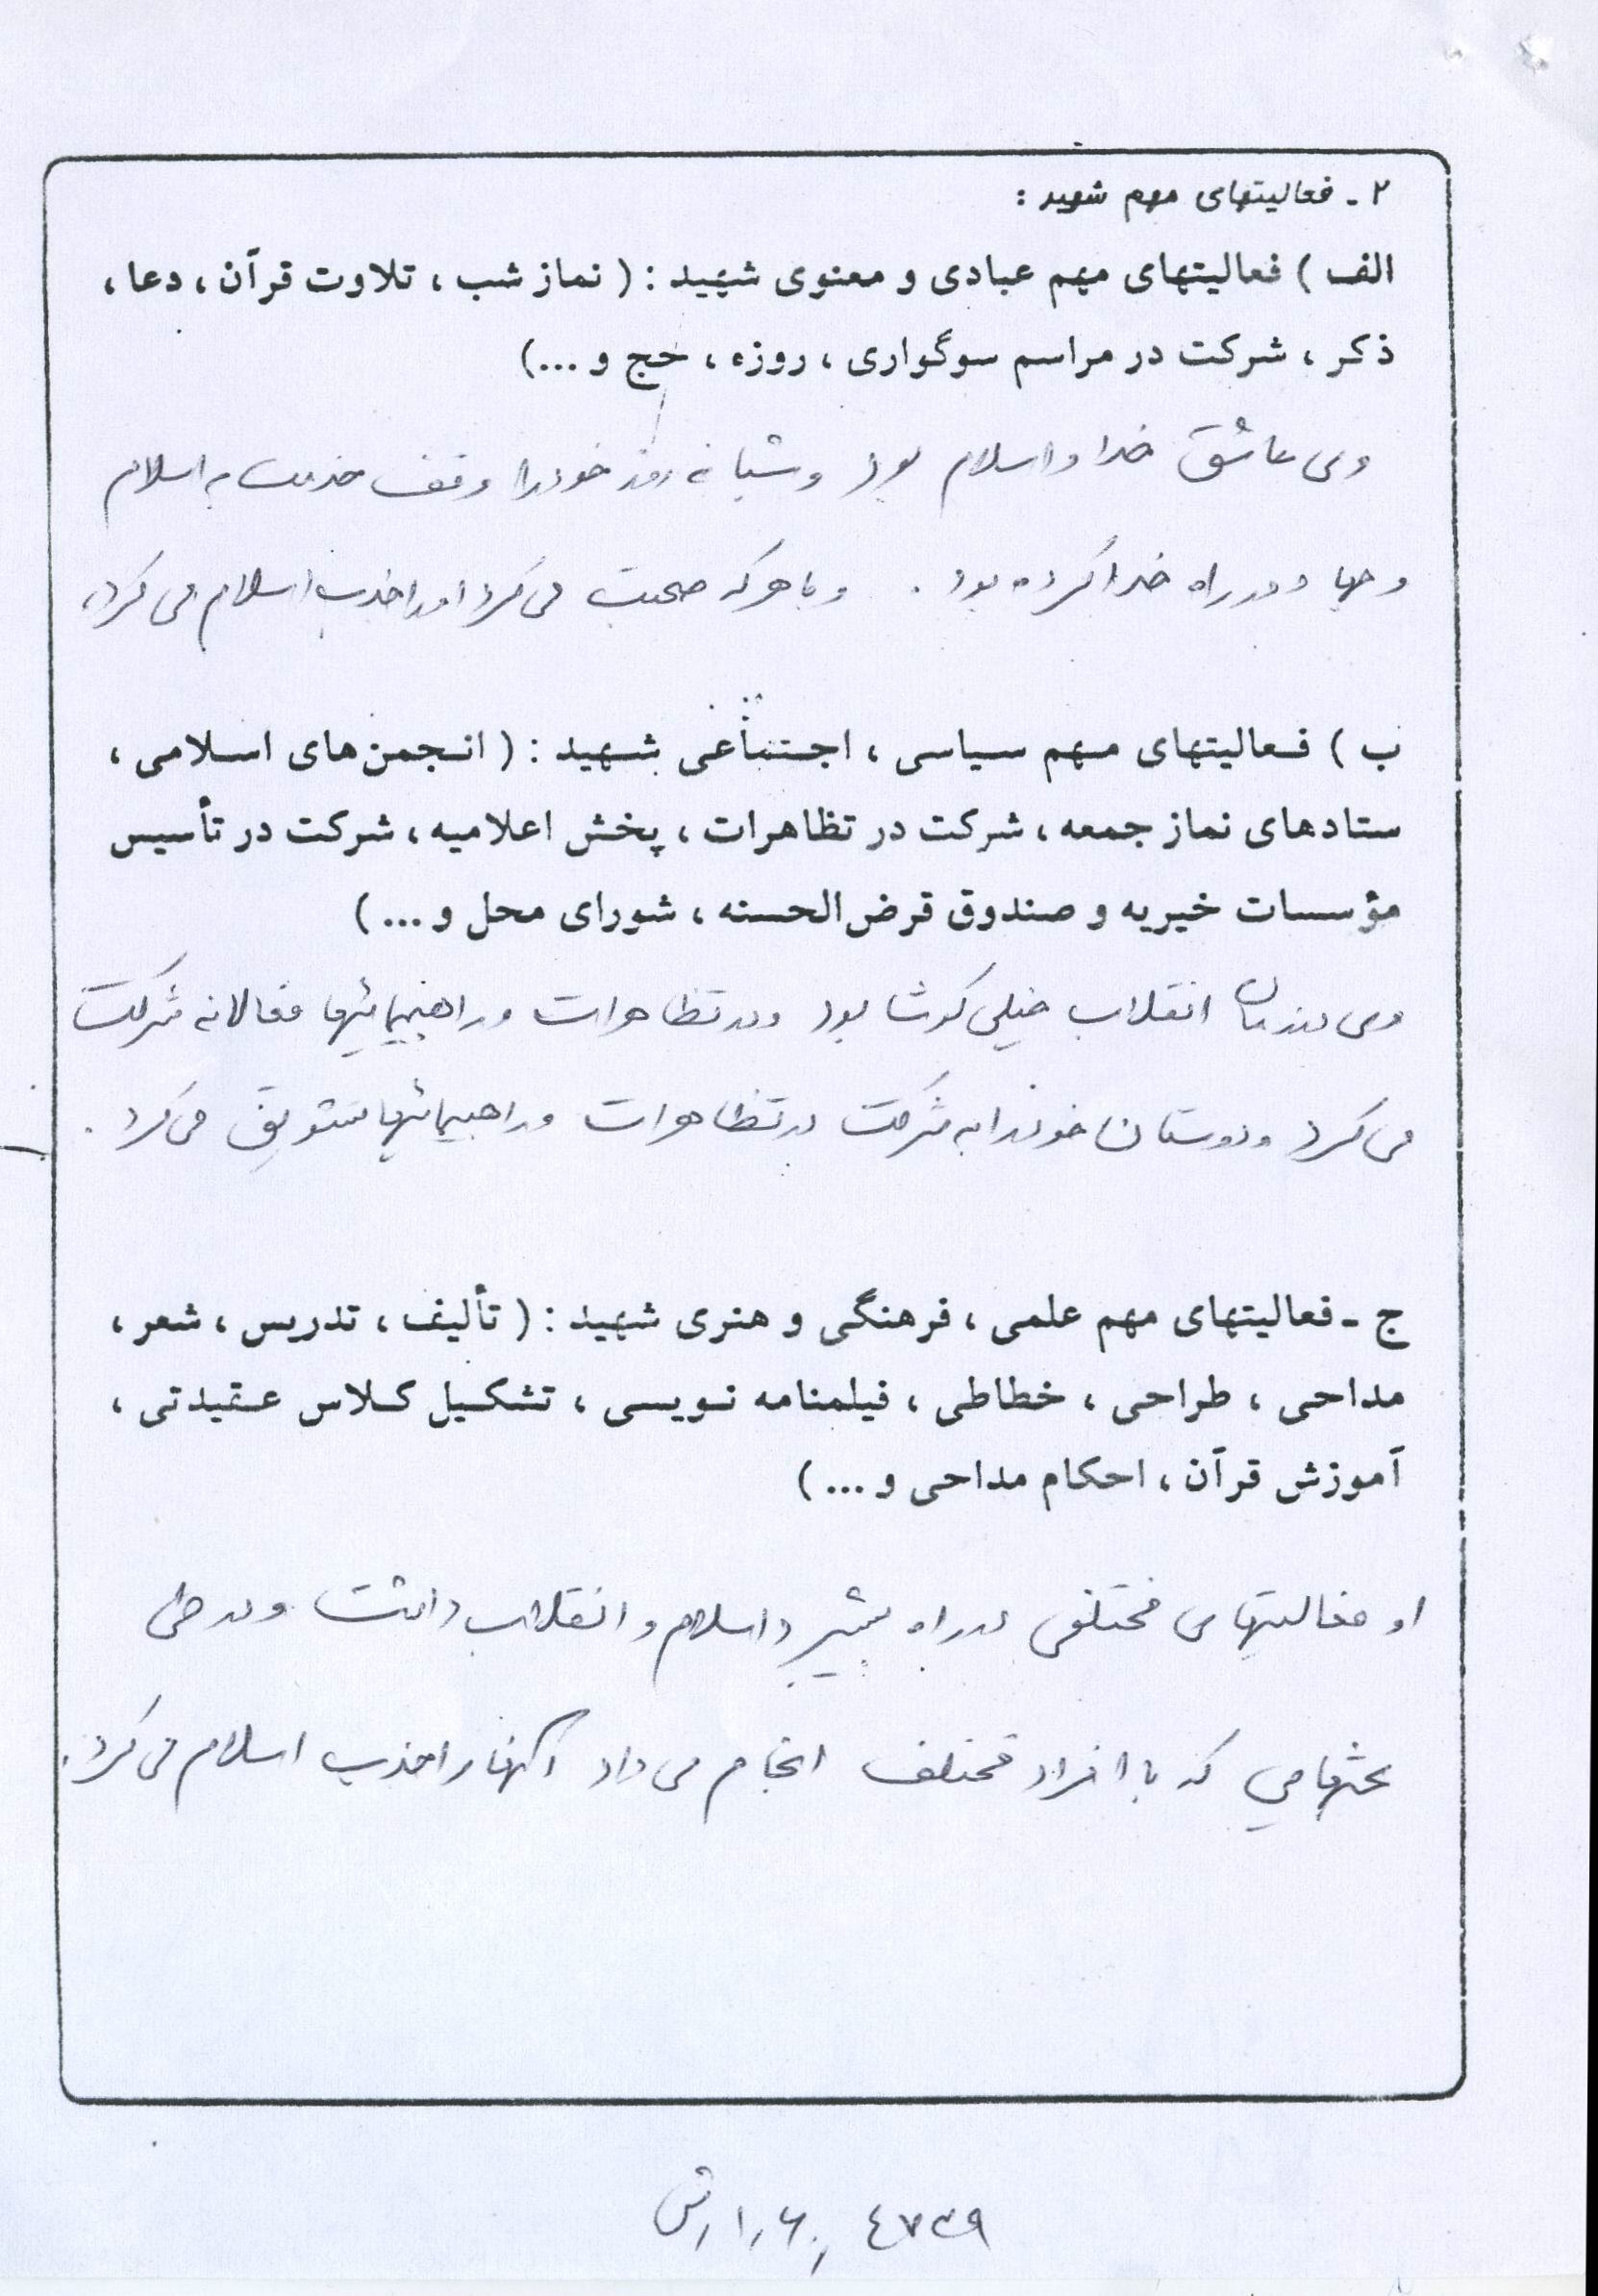 ۲ ـ فعالیتهای مهم شهید :
الف ) فعالیتهای مهم عبادی و معنوی شهید : ( نماز شب ، تلاوت قرآن ، دعا ،
ذکر ، شرکت در مراسم سوگواری ، روزه ، حج و ...)
وی عاشق خدا و اسلام بود و شبانه روز خود را وقف خدمت به اسلام
و جهاد در راه خدا کرده بود . و با هر که صحبت می کرد او را جذب اسلام می کرد.
ب ) فعالیتهای مهم سیاسی ، اجتماعی شهید : ( انجمن های اسلامی ،
ستادهای نماز جمعه ، شرکت در تظاهرات ، پخش اعلامیه ، شرکت در تأسیس
مؤسسات خیریه و صندوق قرض الحسنه ، شورای محل و ... )
وی در زمان انقلاب خیلی کوشا بود و در تظاهرات و راهپیمائیها فعالانه شرکت
می کرد و دوستان خود را به شرکت در تظاهرات و راهپیمائیها تشویق می کرد .
ج ـ فعالیتهای مهم علمی ، فرهنگی و هنری شهید : ( تألیف ، تدریس ، شعر ،
مداحی ، طراحی ، خطاطی ، فیلمنامه نویسی ، تشکیل کلاس عقیدتی ،
آموزش قرآن ، احکام مداحی و ... )
او فعالیتهای مختلفی در راه پیشبرد اسلام و انقلاب داشت و در طی
بحثهایی که با افراد مختلف انجام می داد آنها را جذب اسلام می کرد.
۴۷۳۹